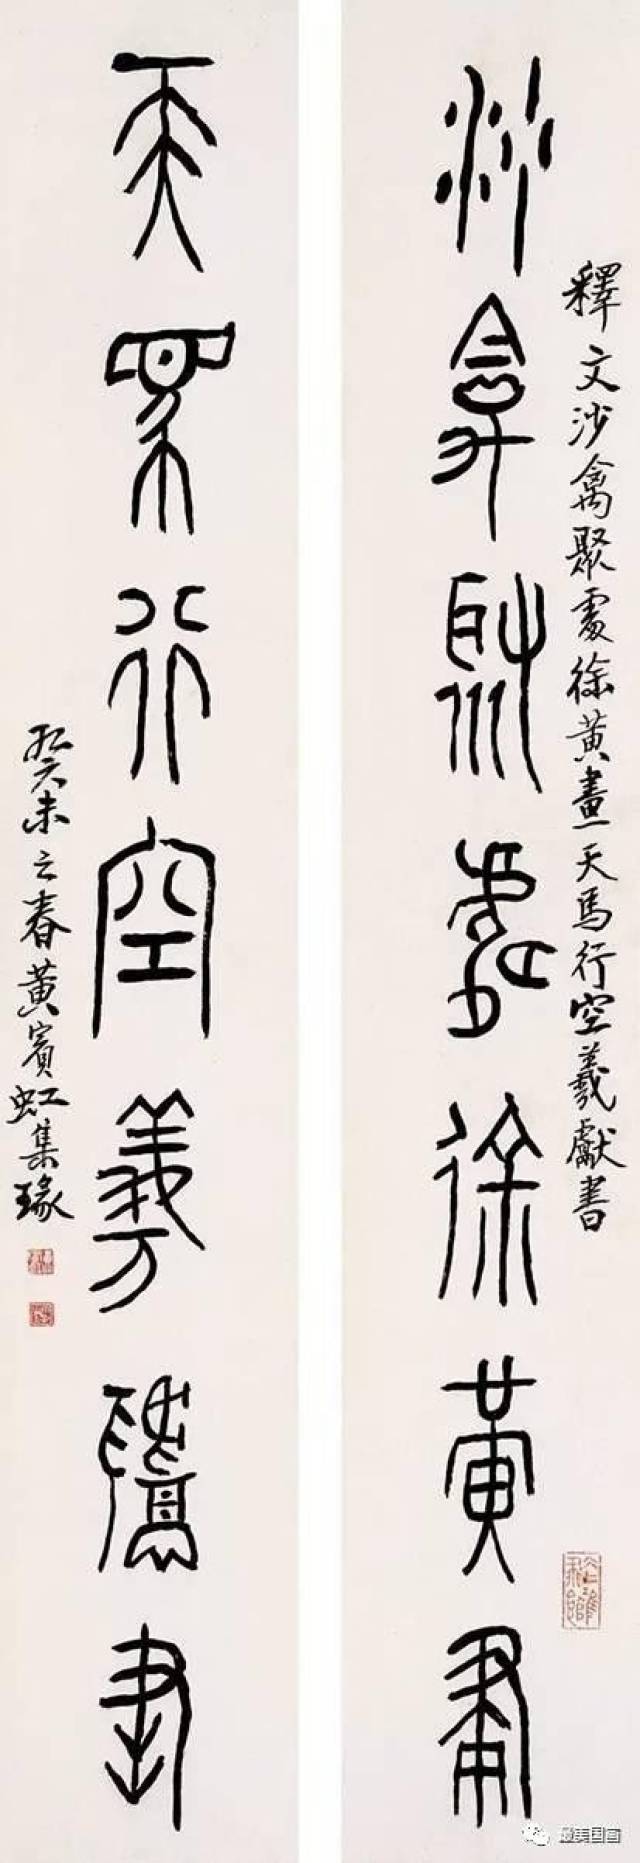 釋文沙禽聚處徐黃畫天馬行空羲獻書
沙禽聚處徐黃畫
天馬行空羲獻書
癸未之春黃賓虹集瑑
最美国画